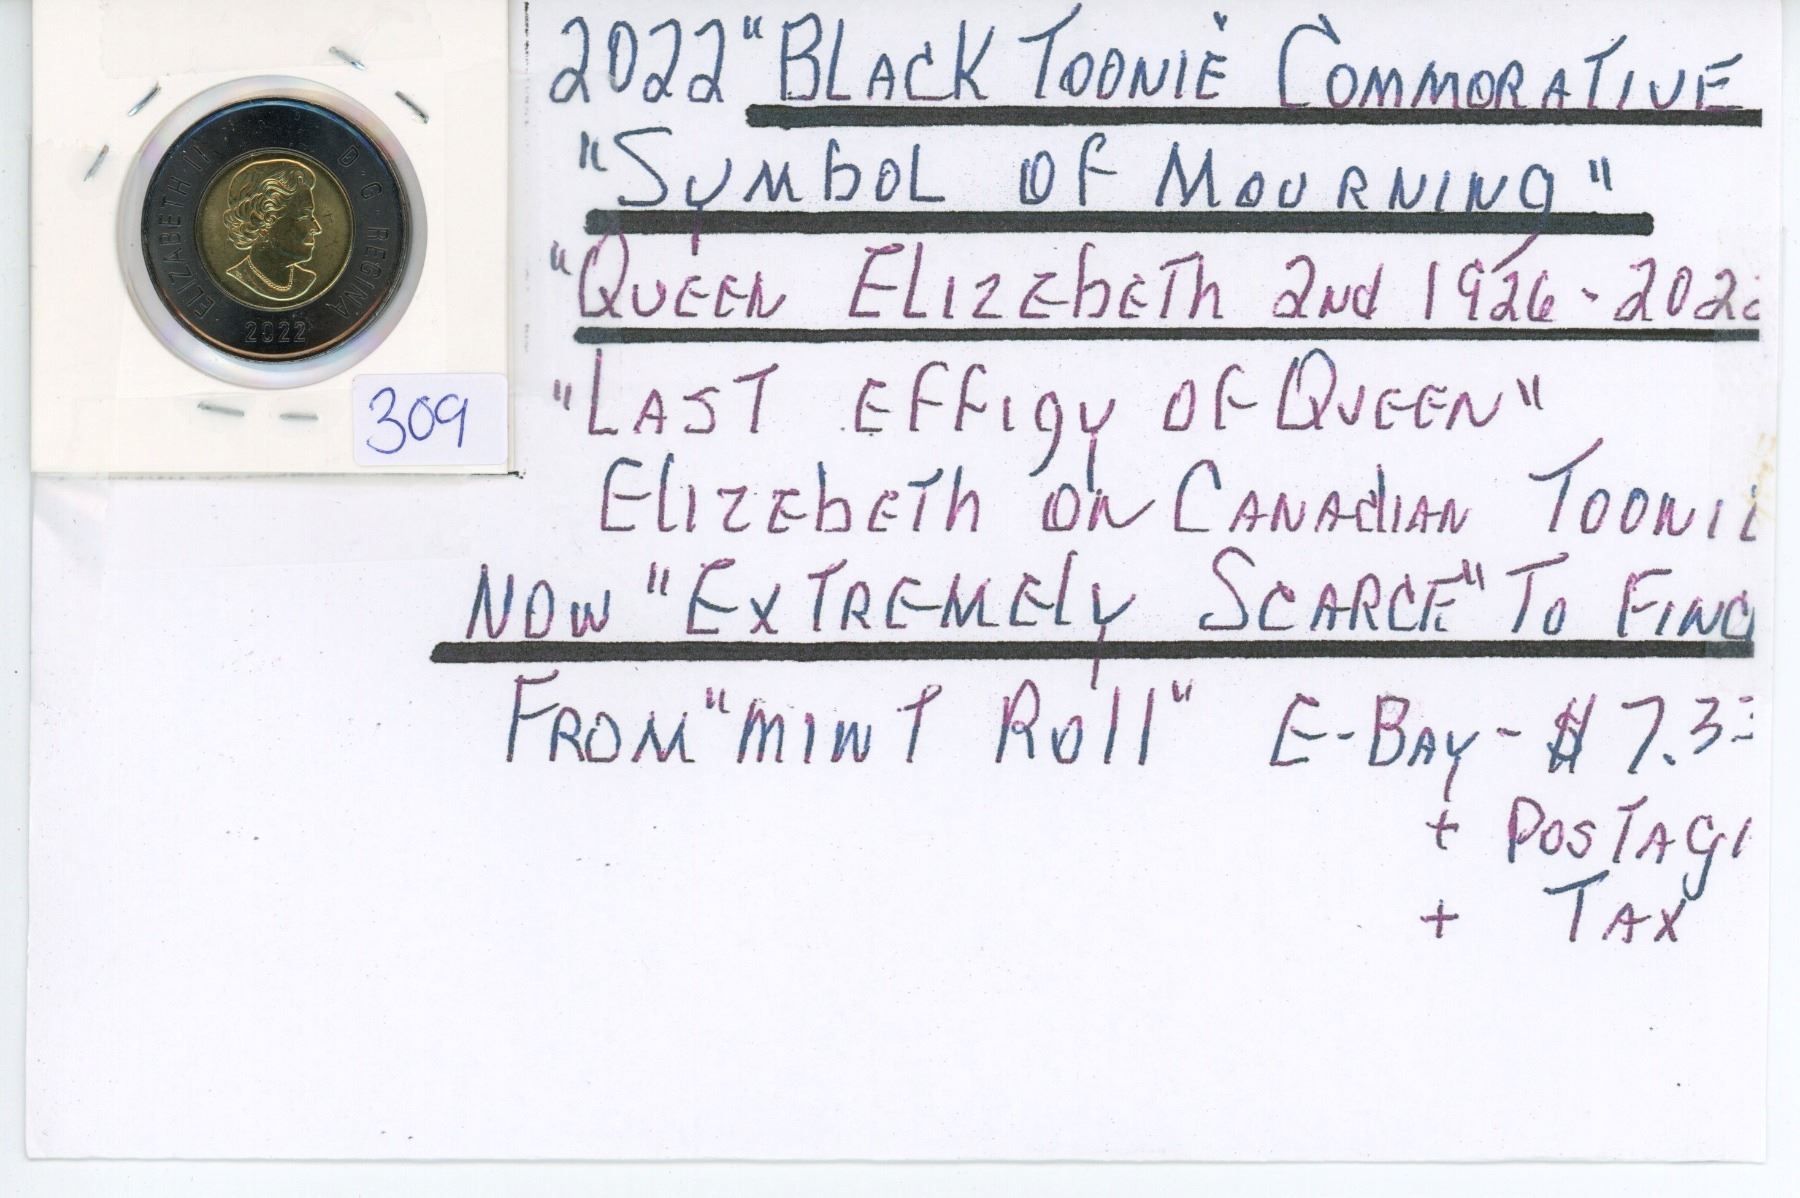 ELIZABETH II D·G·REGINA
2022
309
2022 "BLACK TOONIE" COMMORATIVE
"SYMBOL OF MOURNING"
"QUEEN ELIZEBETH 2ND 1926-2022
"LAST EFFIGY OF QUEEN"
ELIZEBETH ON CANADIAN TOONIE
NOW "EXTREMELY SCARCE" TO FIND
FROM "MINT ROLL" E-BAY - $7.33
+ POSTAGE
+ TAX